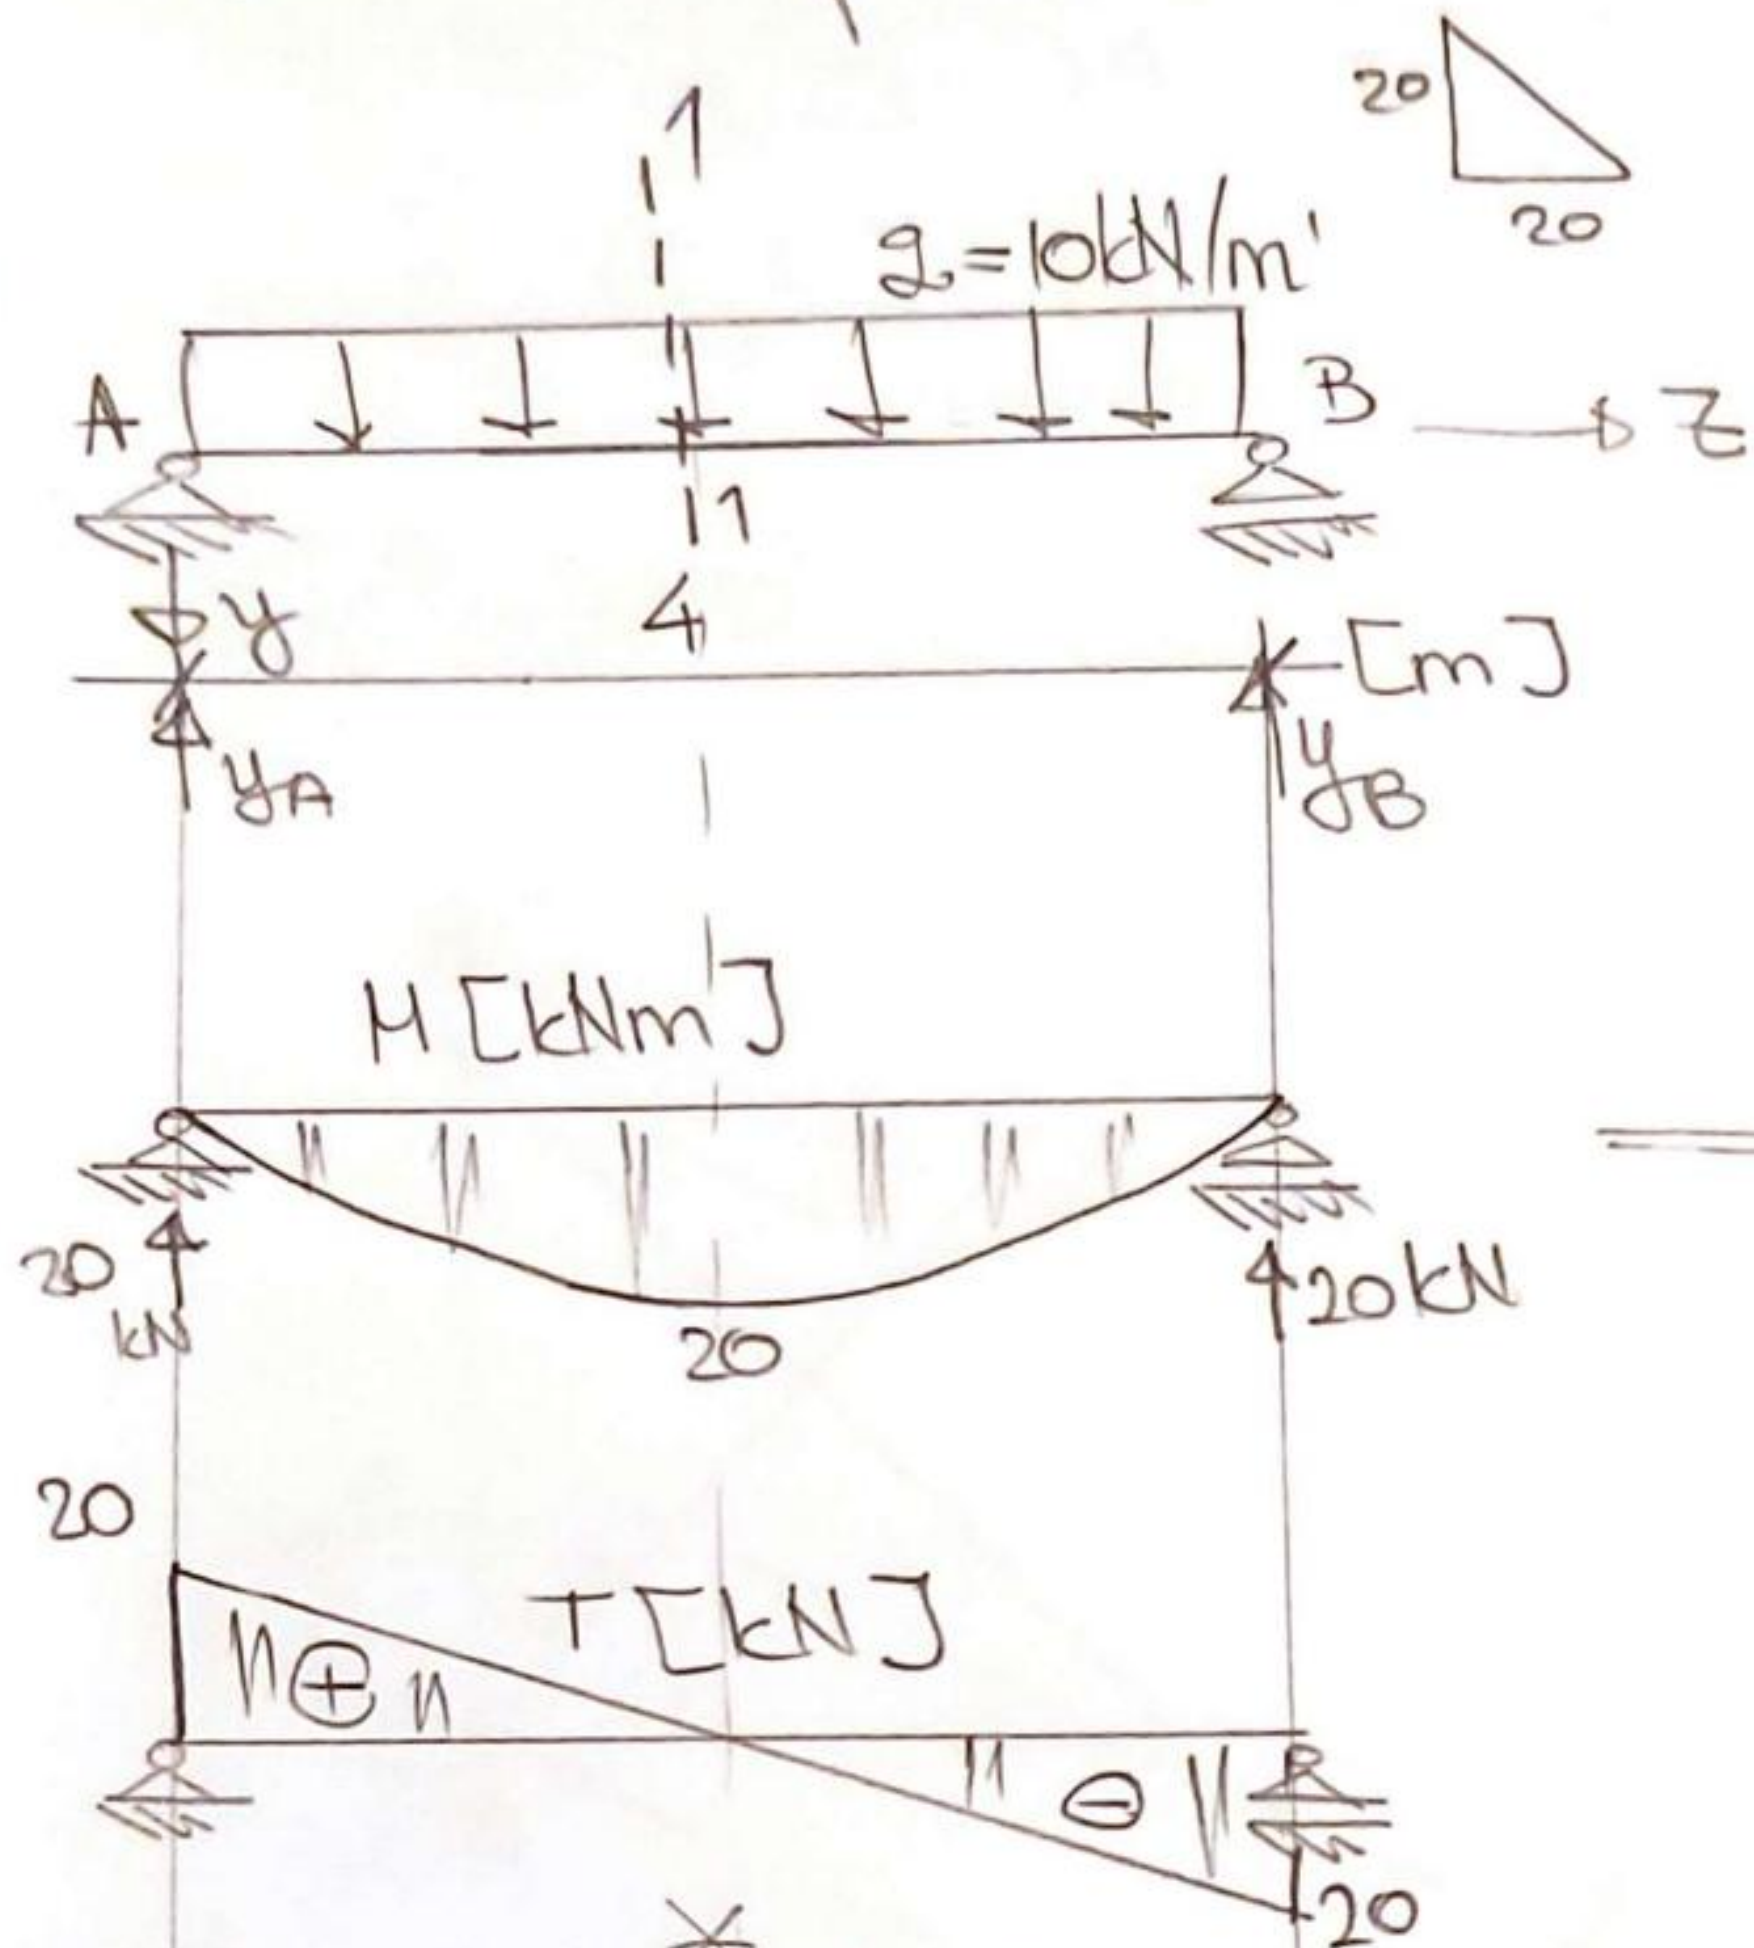 1
20
20
q=10kN/m'
A
B
Z
1
y
4
[m]
yA
yB
M[kNm']
20
kN
20kN
20
20
T[kN]
⊕
⊖
20